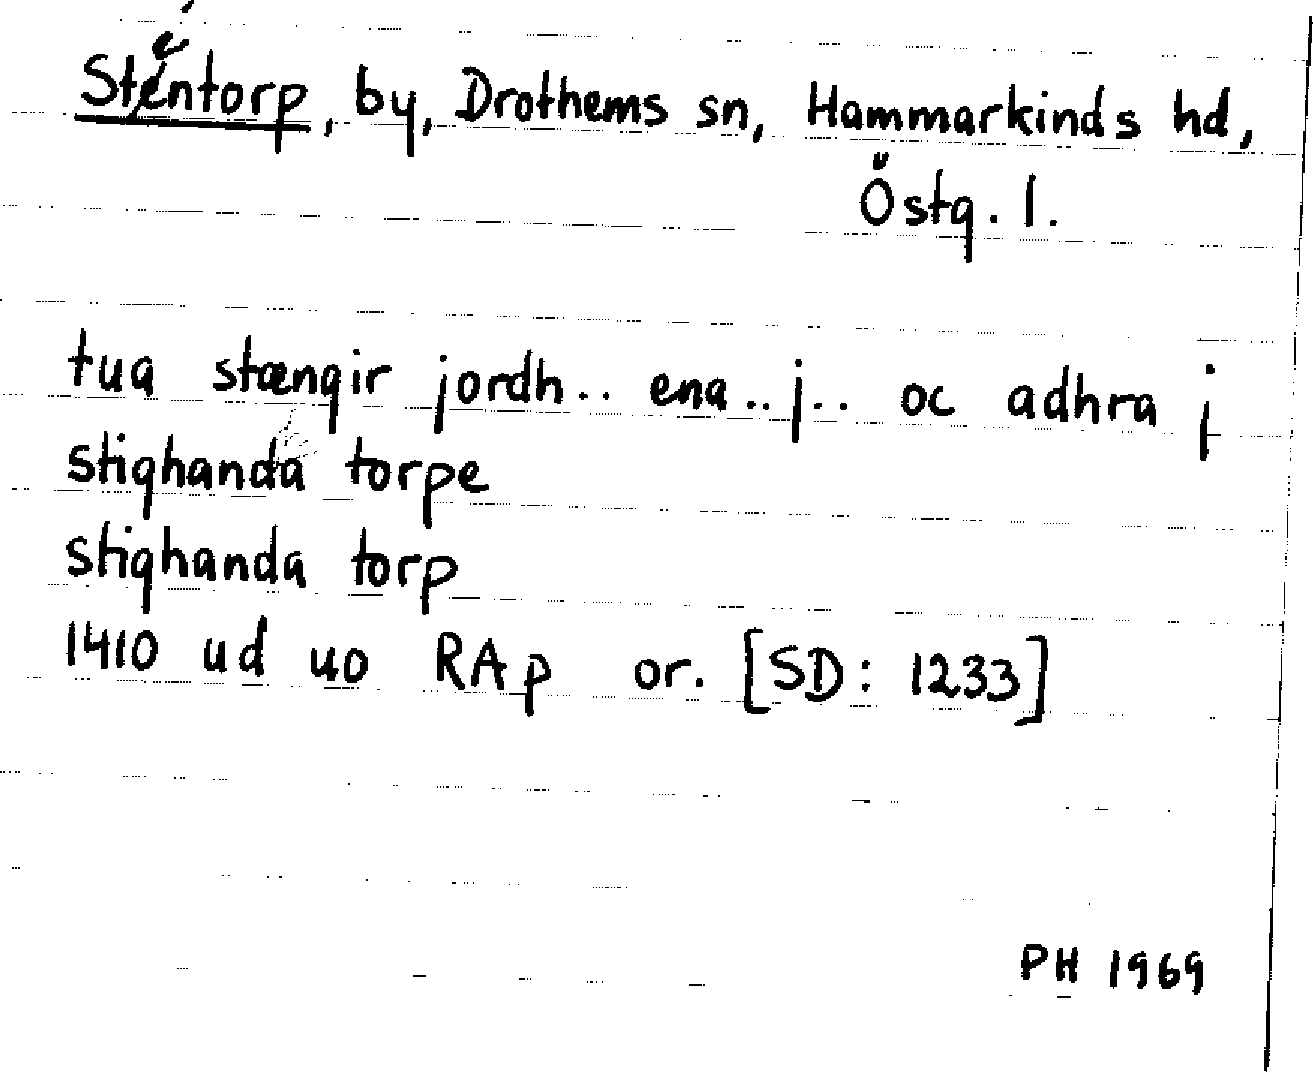 Stentorp, by, Drothems sn, Hammarkinds hd,
Östg. l.
tua stængir jordh.. ena..j.. oc adhra j
stighanda torpe
stighanda torp
1410 ud uo RAp or. [SD: 1233]
PH 1969